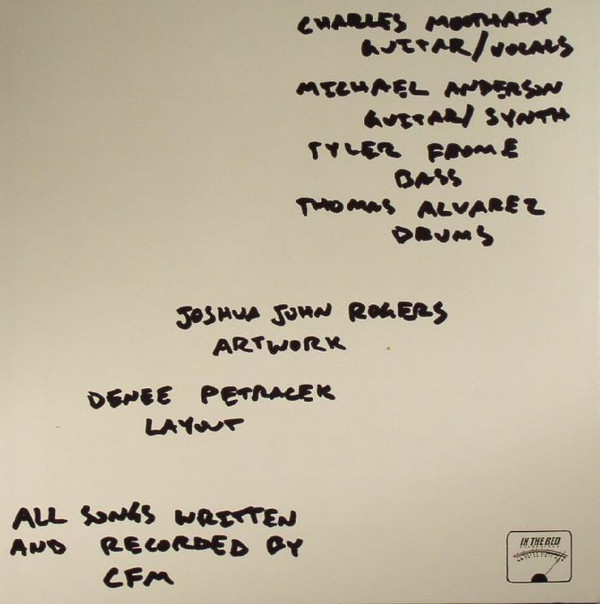 CHARLES MOOTHART
GUITAR/VOCALS
MICHAEL ANDERSON
GUITAR/SYNTH
TYLER FROME
BASS
THOMAS ALVAREZ
DRUMS
JOSHUA JOHN ROGERS
ARTWORK
DENEE PETRACEK
LAYOUT
ALL SONGS WRITTEN
AND RECORDED BY
CFM
IN THE RED